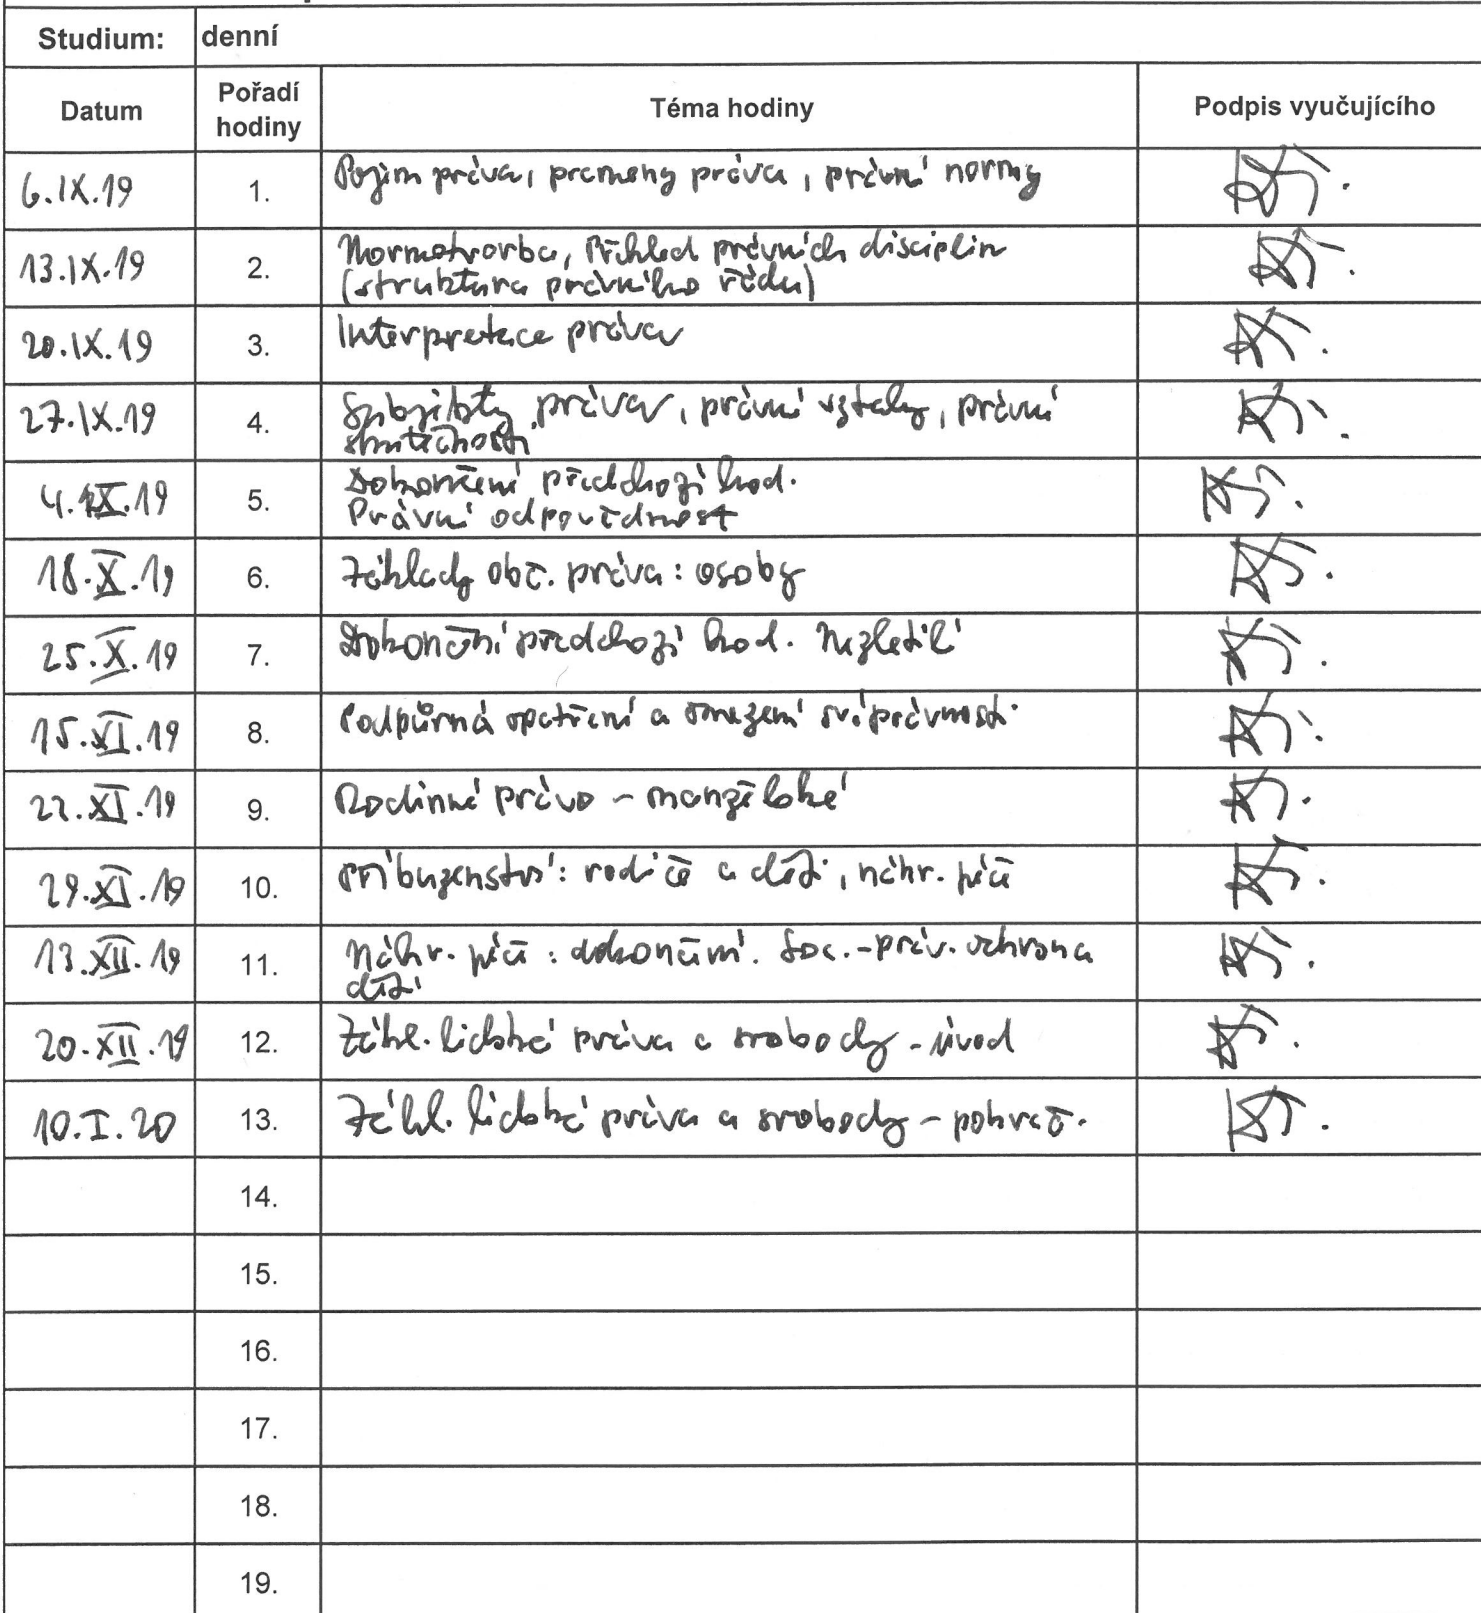 Studium: denní
Datum Pořadí hodiny Téma hodiny Podpis vyučujícího
6.IX.19 1. Pojem práva, prameny práva, právní normy
13.IX.19 2. Normotvorba, Přehled právních disciplin
(struktura právního řádu)
20.IX.19 3. Interpretace práva
27.IX.19 4. Subjekty práva, právní vztahy, právní
skutečnosti
4.X.19 5. Dokončení předchozí hod.
Právní odpovědnost
18.X.19 6. Základy obč. práva: osoby
25.X.19 7. Dokončení předchozí hod. Nezletilí
15.XI.19 8. Podpůrná opatření a omezení svéprávnosti
22.XI.19 9. Rodinné právo - manželské
29.XI.19 10. příbuzenství: rodiče a děti, náhr. péče
13.XII.19 11. Náhr. péče: dokončení. Soc.-práv. ochrana
dětí
20.XII.19 12. Zákl. lidské práva a svobody - úvod
10.I.20 13. Zákl. lidské práva a svobody - pokrač.
14.
15.
16.
17.
18.
19.